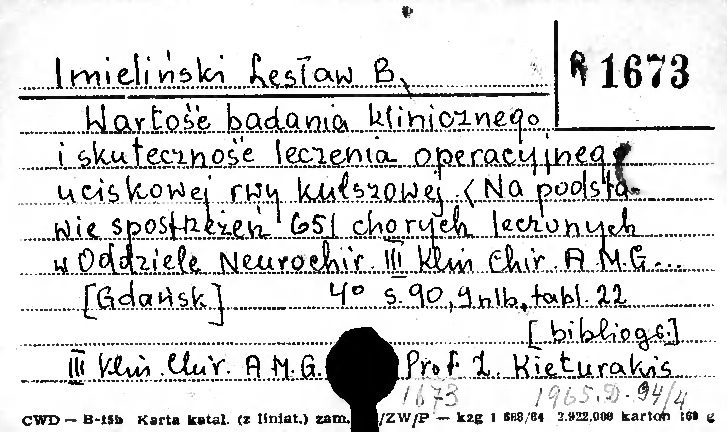 Imieliński Lesław B.
R 1673
Wartość badania klinicznego
i skuteczność leczenia operacyjnego
uciskowej rwy kulszowej. (Na podsta-
wie spostrzeżeń 651 chorych leczonych
w Oddziele Neurochir. III Klin Chir. A.M.G...
[Gdańsk] 4° s. 90, 9 nlb, tabl. 22
[bibliogr.]
III Klin. Chir. A.M.G. Prof. Z. Kieturakis
1673 1965.D. 94/4
CWD — B-15b Karta katal. (z liniat.) zam. /ZW/P — kzg 1 588/64 2.922.000 karton 160 g